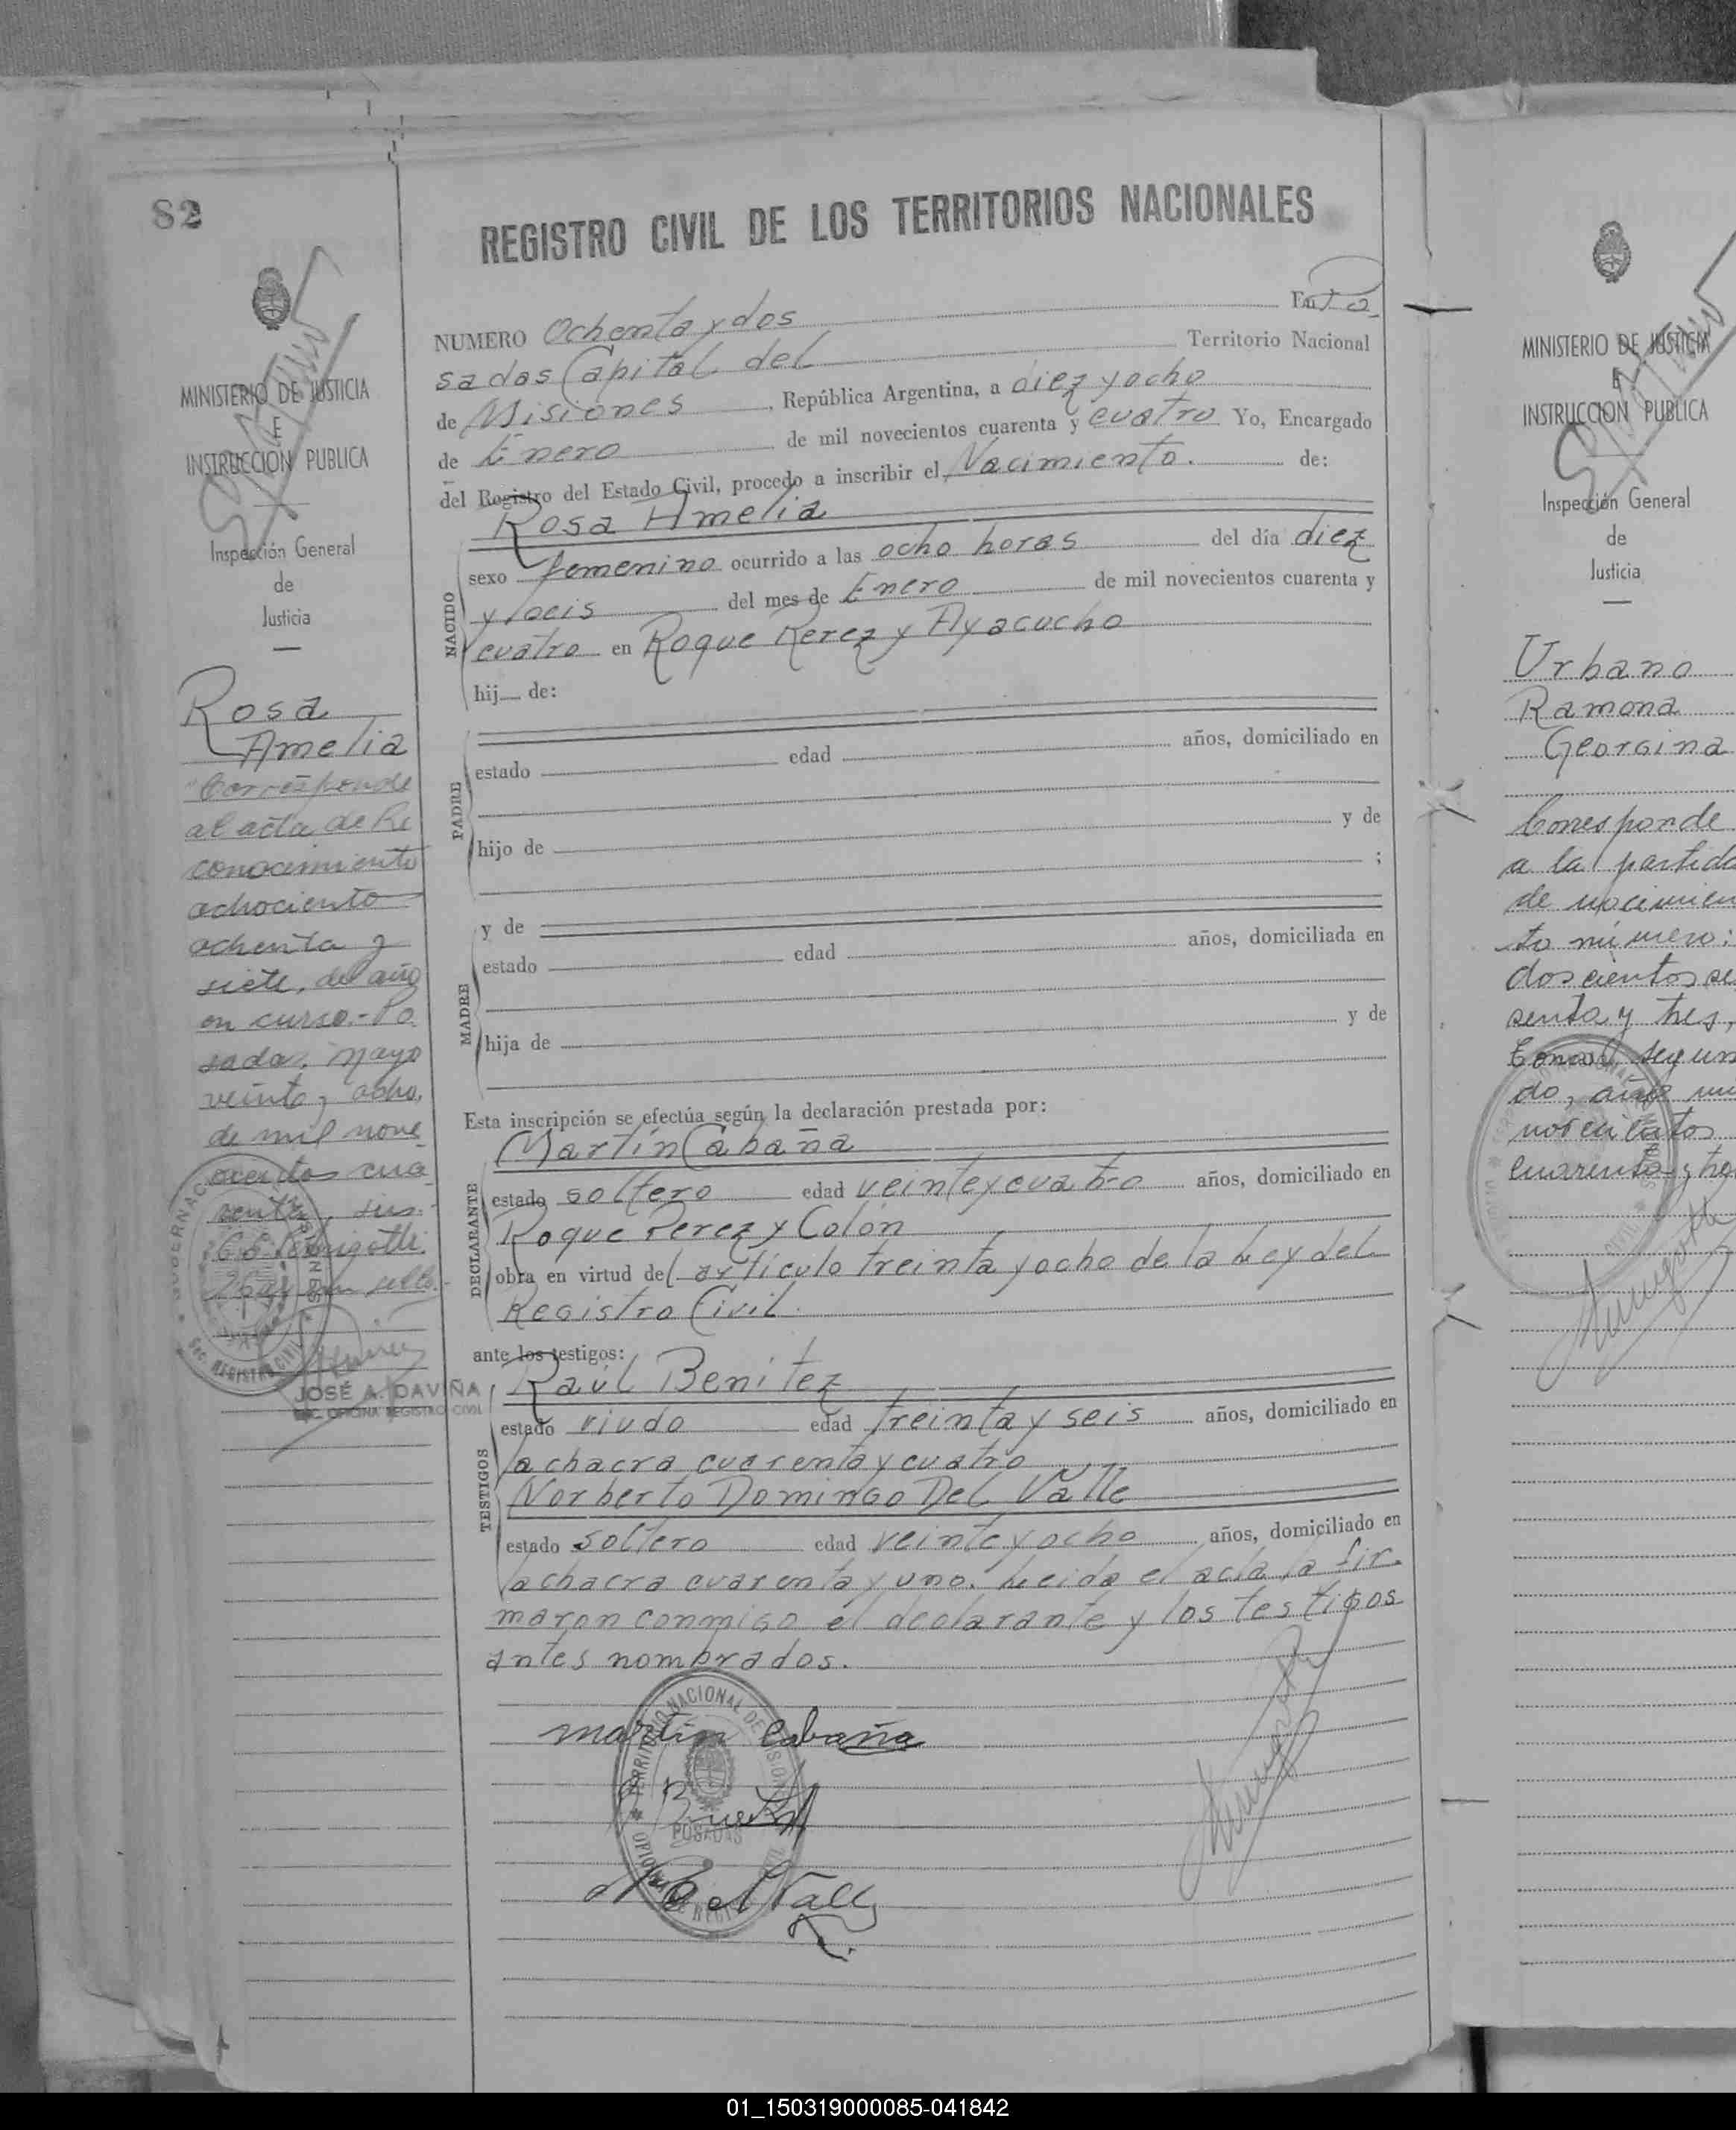 82
REGISTRO CIVIL DE LOS TERRITORIOS NACIONALES
MINISTERIO DE JUSTICIA
E
INSTRUCCION PUBLICA
Inspección General
de
Justicia
Rosa
Amelia
"Corresponde
al acta de Re
conocimiento
ochociento
ochenta y
siete, del año
en curso.- Po
sadas, Mayo
veinte y ocho,
de mil nove
cientos cua
renta
JOSÉ A. DAVIÑA
SEC. OFICINA REGISTRO CIVIL
NUMERO Ochenta y dos En Po
sadas Capital del Territorio Nacional
de Misiones, República Argentina, a diez y ocho
de Enero de mil novecientos cuarenta y cuatro Yo, Encargado
del Registro del Estado Civil, procedo a inscribir el Nacimiento. de:
Rosa Amelia
NACIDO
sexo femenino ocurrido a las ocho horas del dia diez
y seis del mes de Enero de mil novecientos cuarenta y
cuatro en Roque Perez y Ayacucho
hij de:
PADRE
estado edad años, domiciliado en
hijo de y de
;
y de
MADRE
estado edad años, domiciliada en
hija de y de
Esta inscripción se efectúa según la declaración prestada por:
Martín Cabaña
DECLARANTE
estado soltero edad veinte y cuatro años, domiciliado en
Roque Perez y Colón
obra en virtud del artículo treinta y ocho de la Ley del
Registro Civil.
ante los testigos:
Raúl Benitez
TESTIGOS
estado viudo edad treinta y seis años, domiciliado en
la chacra cuarenta y cuatro
Norberto Domingo Del Valle
estado soltero edad veinte y ocho años, domiciliado en
la chacra cuarenta y uno. Leida el acta la fir-
maron conmigo el declarante y los testigos
antes nombrados.
martin Cabaña
TERRITORIO NACIONAL DE MISIONES
POSADAS
MINISTERIO DE JUSTICIA
E
INSTRUCCION PUBLICA
Inspección General
de
Justicia
Urbano
Ramona
Georgina
Corresponde
a la partida
de nacimien
to número:
doscientos se
senta y tres,
Tomo segun
do, año mil
novecientos
cuarenta y tre
01_150319000085-041842